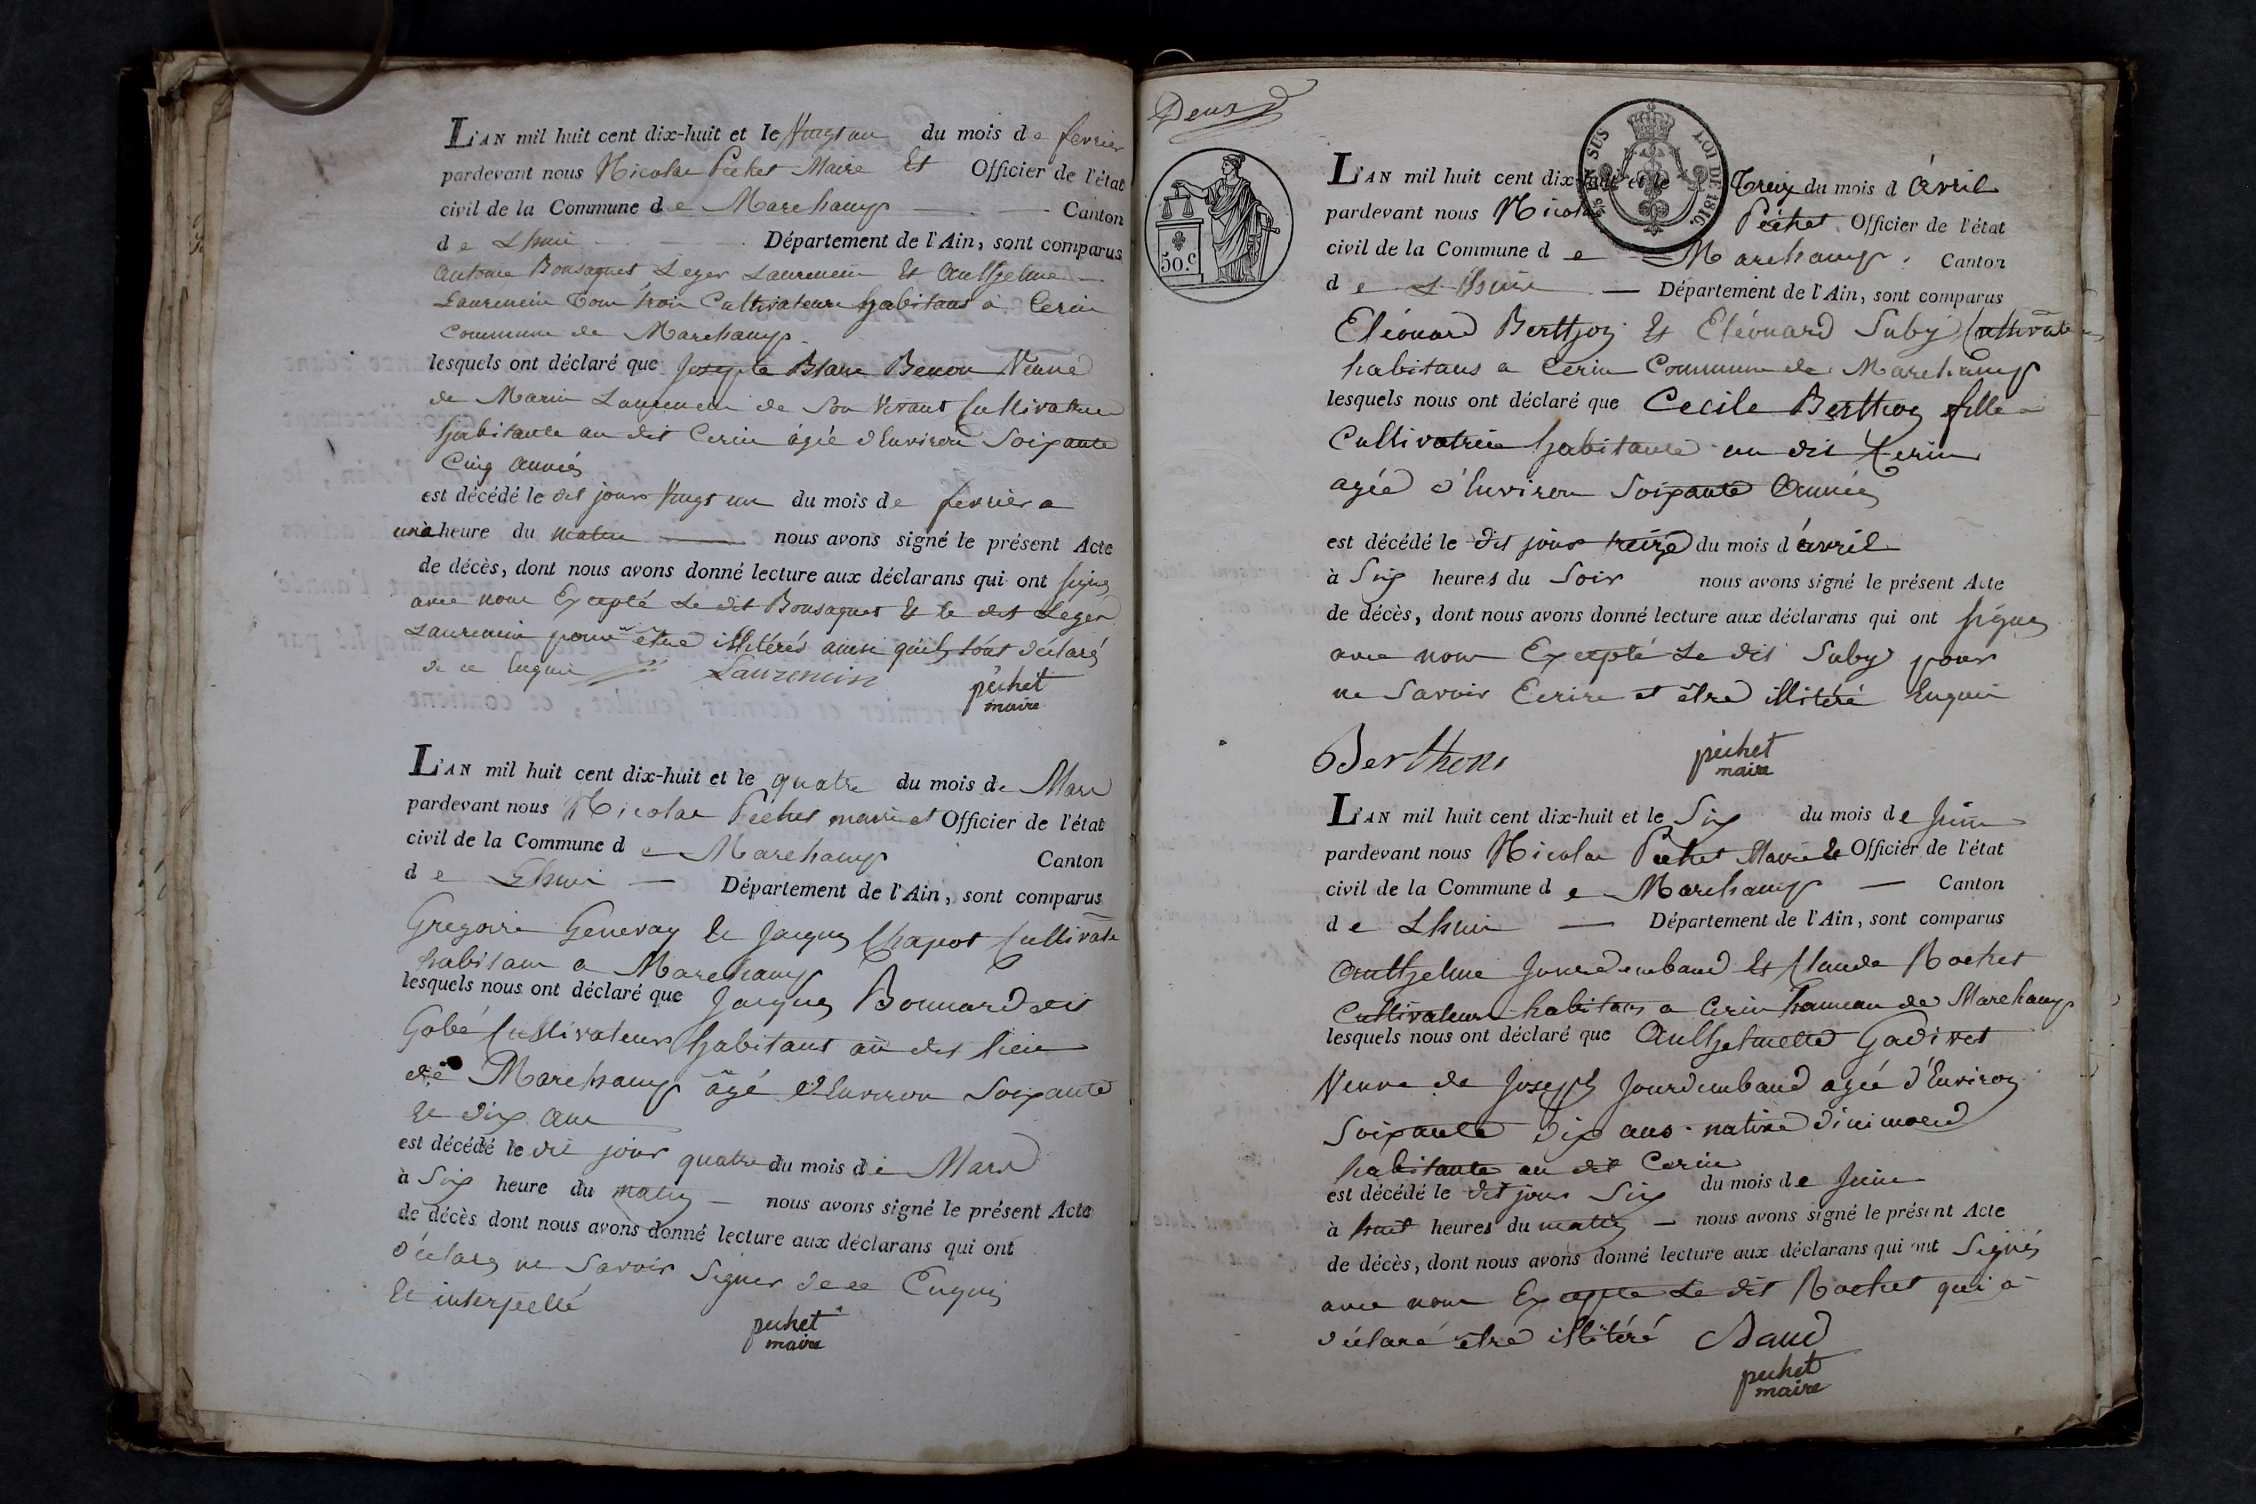 L'AN mil huit cent dix-huit et le Vingt un du mois de fevrier
pardevant nous Nicolas Pechet Maire Et Officier de l'état
civil de la Commune de Marchamp Canton
de Lhuis Département de l'Ain, sont comparus
Antoine Bonsaquet Leger Laurencin Et Anthelme
Laurencin Tous trois Cultivateurs habitans à Cerin
Commune de Marchamp
lesquels ont déclaré que Josepte Blanc Benon Veuve
de Marin Laurencin de Son Vivant Cultivatrice
habitante au dit Cerin agée d'Environ Soixante
Cinq Années
est décédé le dit jour Vingt un du mois de fevrier a
une heure du matin nous avons signé le présent Acte
de décès, dont nous avons donné lecture aux déclarans qui ont signes
avec nous Excepté Le dit Bonsaquet Et le dit Leger
Laurencin pour être illitérés ainsi qu'ils l'ont déclaré
de ce Enquis Laurencin
péchet
maire
L'AN mil huit cent dix-huit et le quatre du mois de Mars
pardevant nous Nicolas Péchet maire et Officier de l'état
civil de la Commune de Marchamp Canton
de Lhuis Département de l'Ain, sont comparus
Gregoire Genevay Et Jacques Chapot Cultivat
habitans a Marchamp
lesquels nous ont déclaré que Jacques Bonnard dit
Gobé Cultivateur habitant au dit lieu
de Marchamp âgé d'Environ Soixante
Et dix ans
est décédé le dit jour quatre du mois de Mars
à Six heure du matin nous avons signé le présent Acte
de décès dont nous avons donné lecture aux déclarans qui ont
déclarés ne Savoir Signer de ce Enquis
Et interpellé
pechet
maire
Deux
50.c
LOI DE 1816.
L'AN mil huit cent dix-huit et le Treize du mois d'Avril
pardevant nous Nicolas Péchet Officier de l'état
civil de la Commune de Marchamp. Canton
de Lhuis Département de l'Ain, sont comparus
Eléonard Berthoy Et Eléonard Suby Cultivate
habitans a Cerin Commune de Marchamp
lesquels nous ont déclaré que Cecile Berthoy fille
Cultivatrice habitante au dit Cerin
agée d'Environ Soixante Années
est décédé le dit jour treize du mois d'avril
à Six heures du Soir nous avons signé le présent Acte
de décès, dont nous avons donné lecture aux déclarans qui ont signes
avec nous Excepté Le dit Suby pour
ne Savoir Ecrire et être illitéré Enquis
péchet
maire
L'AN mil huit cent dix-huit et le Six du mois de Juin
pardevant nous Nicolas Pechet Maire Et Officier de l'état
civil de la Commune de Marchamp Canton
de Lhuis Département de l'Ain, sont comparus
Anthelme Jourdembaud Et Claude Rochet
Cultivateurs habitans a Cerin hameau de Marchamp
lesquels nous ont déclaré que Anthelmette Gadivet
Veuve de Joseph Jourdembaud agée d'Environ
Soixante dix ans native
habitante au dit Cerin
est décédé le dit jour Six du mois de Juin
à huit heures du matin nous avons signé le présent Acte
de décès, dont nous avons donné lecture aux déclarans qui ont Signés
avec nous Excepté Le dit Rochet qui a
déclaré être illitéré Baud
pechet
maire